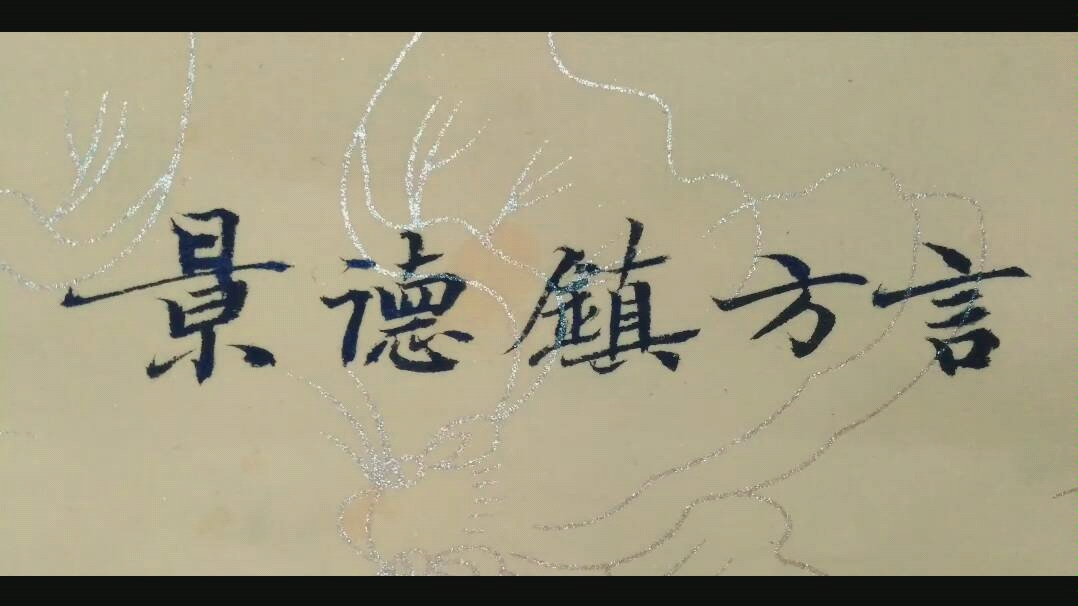 景德鎮方言